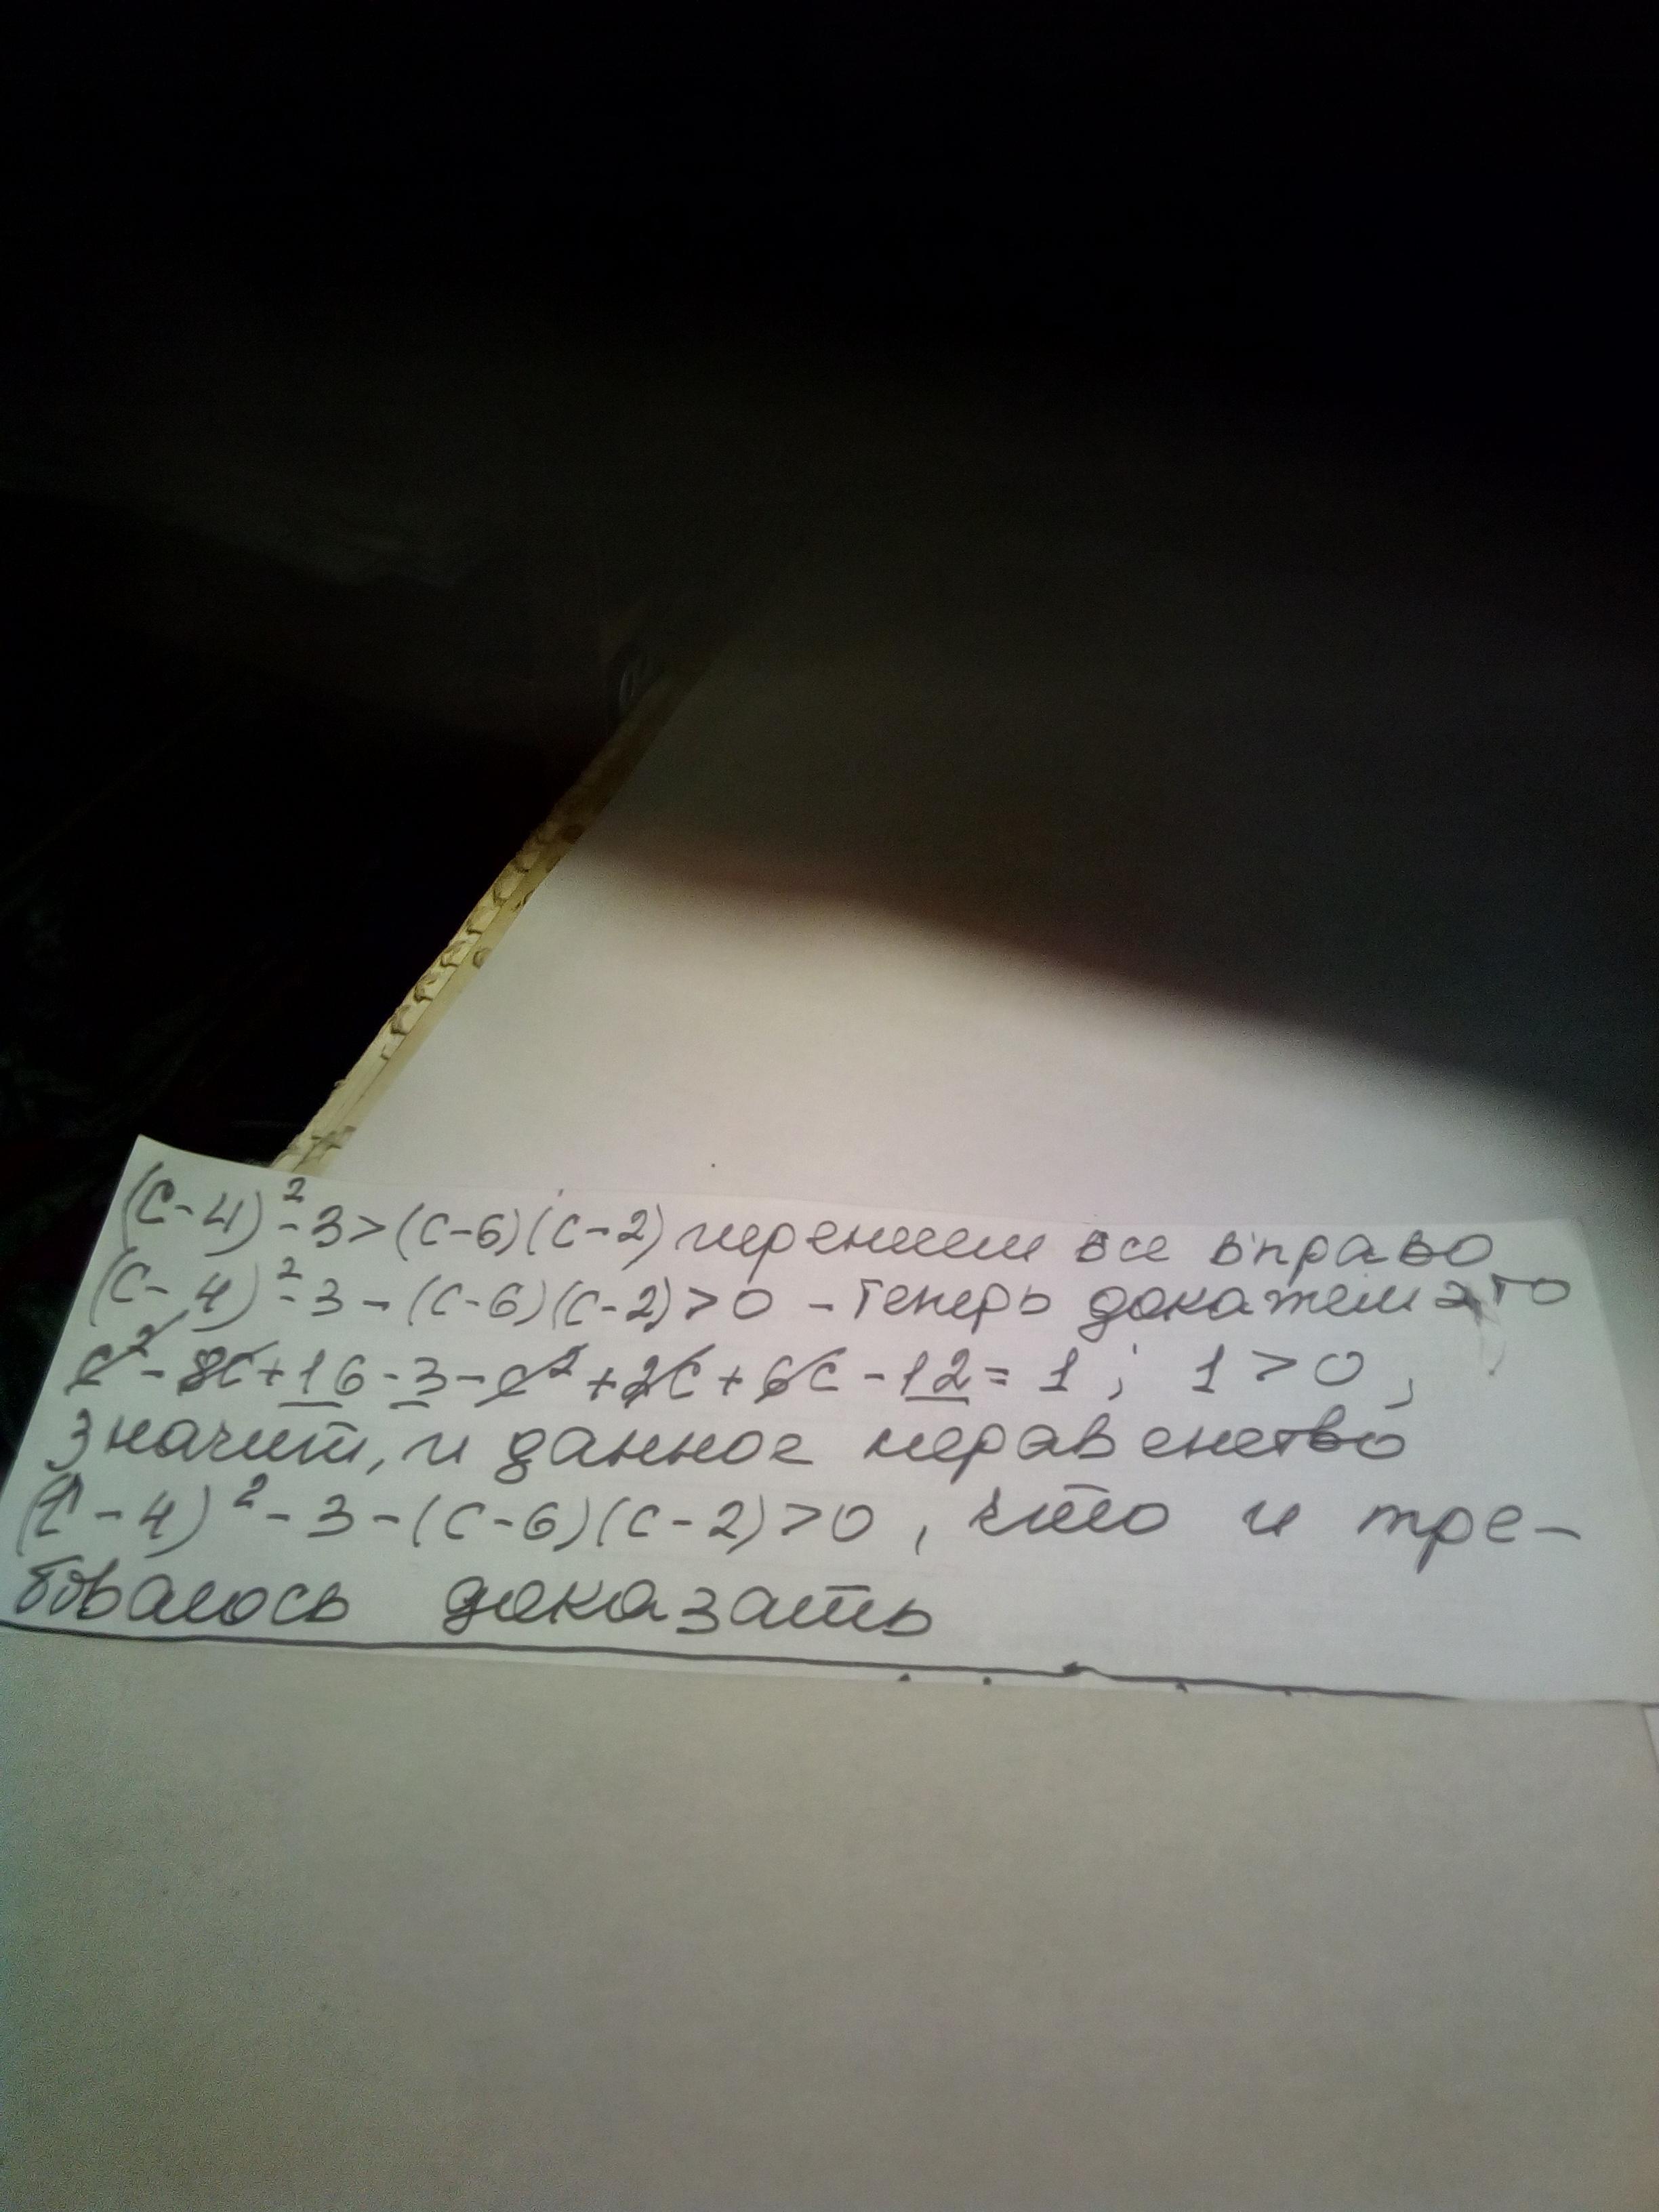 (c-4)²-3>(c-6)(c-2) перенесем все вправо
(c-4)²-3-(c-6)(c-2)>0 - теперь докажем это
c²-8c+16-3-c²+2c+6c-12=1; 1>0,
значит, и данное неравенство
(c-4)²-3-(c-6)(c-2)>0, что и тре-
бовалось доказать